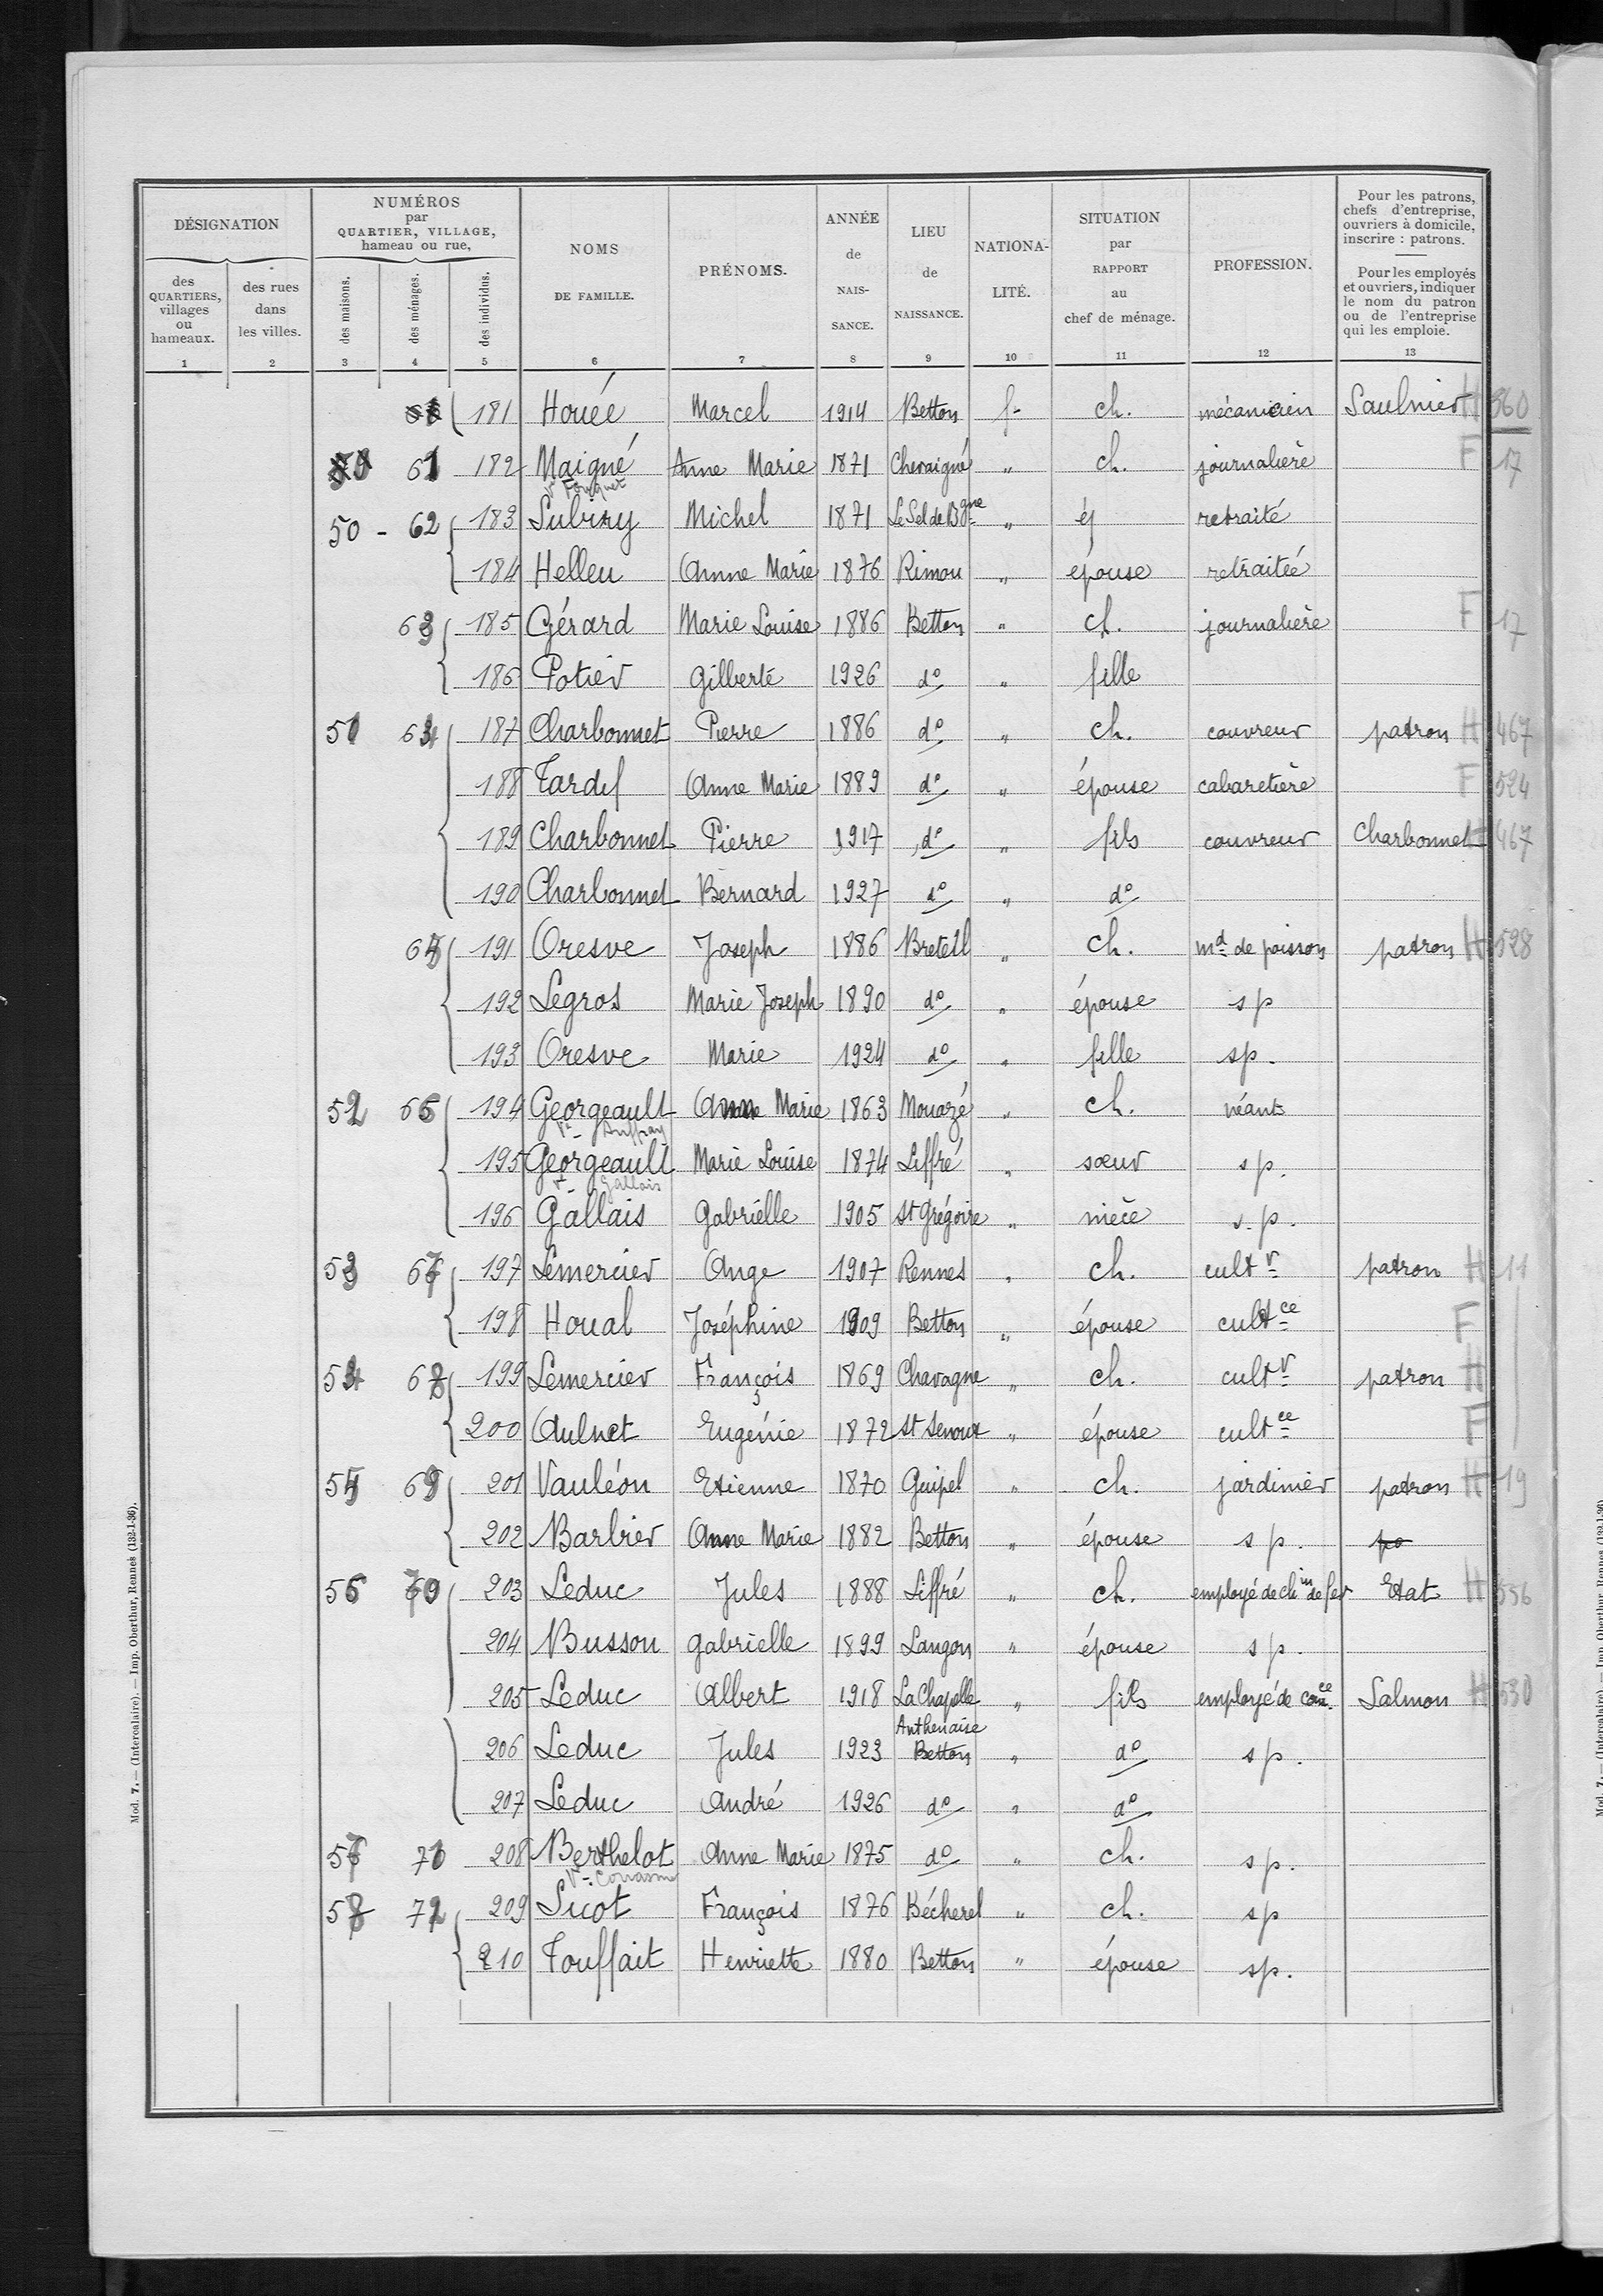 DÉSIGNATION
des QUARTIERS, villages ou hameaux.
des rues dans les villes.
NUMÉROS par QUARTIER, VILLAGE, hameau ou rue,
des maisons.
des ménages.
des individus.
NOMS DE FAMILLE.
PRÉNOMS.
ANNÉE de NAIS-SANCE.
LIEU de NAISSANCE.
NATIONA-LITÉ.
SITUATION par RAPPORT au chef de ménage.
PROFESSION.
Pour les patrons, chefs d'entreprise, ouvriers à domicile, inscrire : patrons.
Pour les employés et ouvriers, indiquer le nom du patron ou de l'entreprise qui les emploie.
1 2 3 4 5 6 7 8 9 10 11 12 13
181 Houée Marcel 1914 Betton f- ch. mécanicien Saulnier H 360
61 182 Maigné Anne Marie 1871 Chevaigné " ch. journalière F 17
Ve Fouquet
50 - 62 183 Michel 1871 Le Sel de Bgne " retraité
184 Helleu Anne Marie 1876 Rimou " épouse retraitée
63 185 Gérard Marie Louise 1886 Betton " ch. journalière F 17
186 Potier Gilberte 1926 do " fille
51 64 187 Charbonnet Pierre 1886 do " ch. couvreur patron H 467
188 Tardif Anne Marie 1889 do " épouse cabaretière F 524
189 Charbonnet Pierre 1917 do " fils couvreur Charbonnet H 467
190 Charbonnet Bernard 1927 do " do
65 191 Oresve Joseph 1886 Breteil " ch. md de poisson patron H 528
192 Legros Marie Joseph 1890 do " épouse sp
193 Oresve Marie 1924 do " fille sp.
52 66 194 Georgeault Anne Marie 1863 Mouazé " ch. néant
Ve Auffray
195 Georgeault Marie Louise 1874 Liffré " sœur sp.
Ve Gallais
196 Gallais Gabrielle 1905 St Grégoire " nièce s.p.
53 67 197 Lemercier Ange 1907 Rennes " ch. cultr patron H 11
198 Houal Joséphine 1909 Betton " épouse cultce F
54 68 199 Lemercier François 1869 Chavagne " ch. cultr patron H
200 Aulnet Eugénie 1872 St Senoux " épouse cultce F
55 69 201 Vauléon Etienne 1870 Guipel " ch. jardinier patron H 19
202 Barbier Anne Marie 1882 Betton " épouse sp. po
56 70 203 Leduc Jules 1888 Liffré " ch. employé de chin de fer Etat H 556
204 Busson Gabrielle 1899 Langon " épouse sp.
205 Leduc Albert 1918 La Chapelle " fils employé de comce Salmon H 530
Anthenaise
206 Leduc Jules 1923 Betton " do sp.
207 Leduc André 1926 do " do
57 71 208 Berthelot Anne Marie 1875 do " ch. sp.
58 72 209 Sicot François 1876 Bécherel " ch. sp
210 Touffait Henriette 1880 Betton " épouse sp.
Mod. 7. — (Intercalaire). — Imp. Oberthur, Rennes (132-1-36).